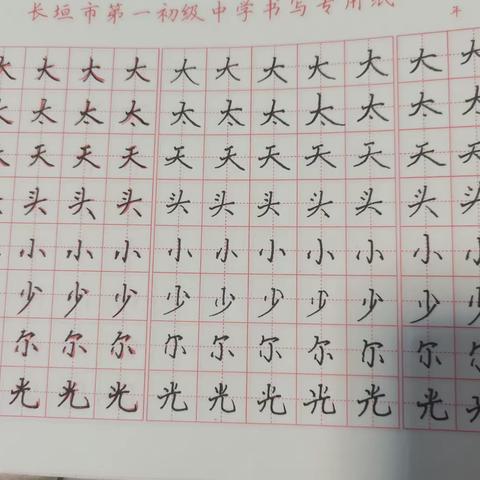 长垣市第一初级中学书写专用纸 年
大大大大大大大大大大大
太太太太太太太太太太太
天天天天天天天天天天天
头头头头头头头头头头
小小小小小小小小小小
少少少少少少少少少少
尔尔尔尔尔尔尔尔尔
光光光光光光光光光光